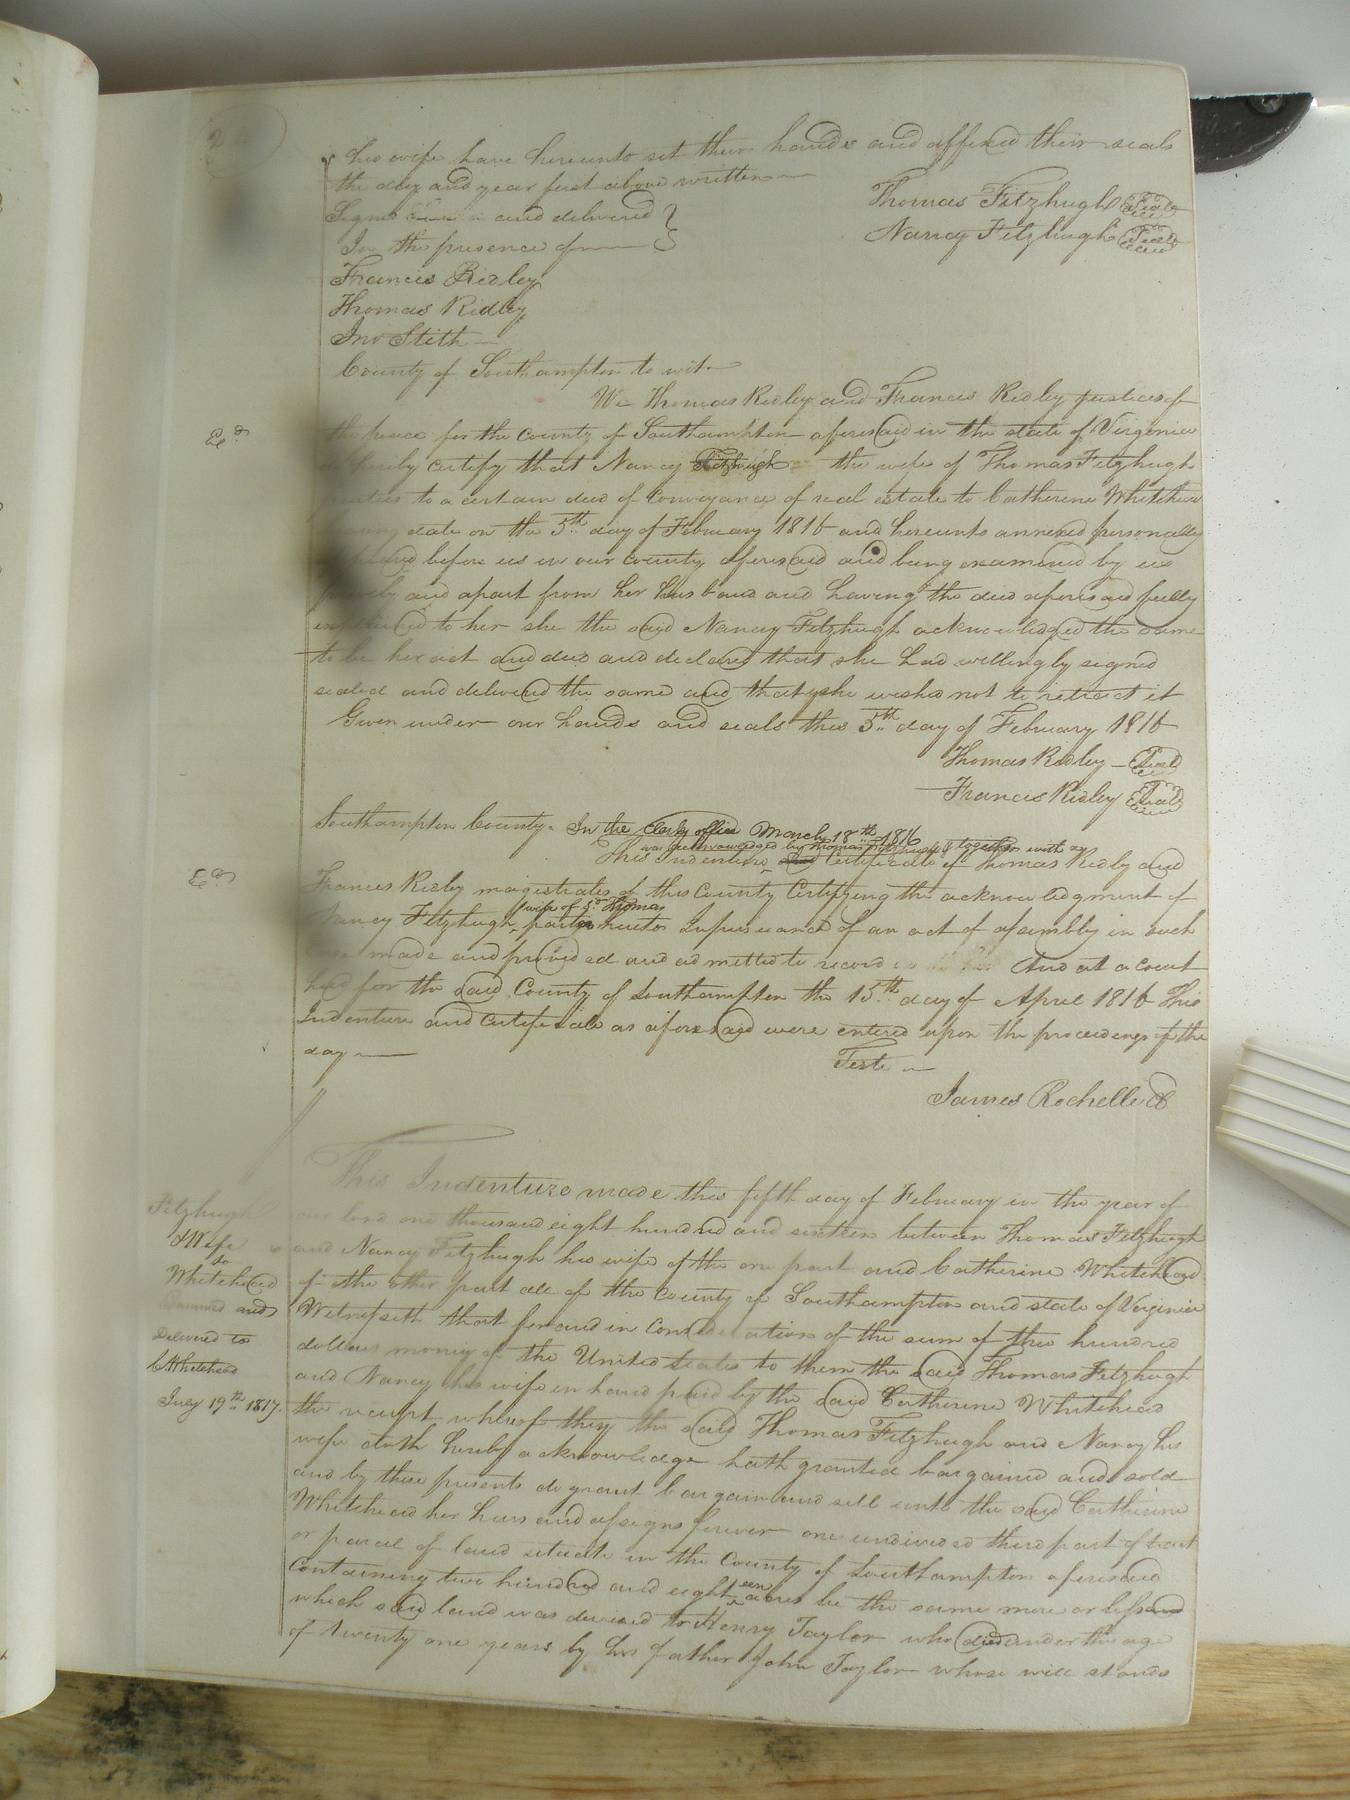 his wife have hereunto set their hands and affixed their seals
the day and year first above written
Thomas Fitzhugh Seal
Signd and delivered
Nancy Fitzhugh Seal
In the presence of
Francis Ridley
Thomas Ridley
Jno Stith
County of Southampton to wit
We Thomas Ridley and Francis Ridley justices of
the peace for the County of Southampton aforesaid in the state of Virginia
do hereby certify that Nancy Fitzhugh the wife of Thomas Fitzhugh
parties to a certain deed of Conveyance of real estate to Catherine Whitehead
date on the 5th day of February 1816 and hereunto annexed personally
before us in our county aforesaid and being examined by us
and apart from her husband and having the deed aforesaid fully
to her she the said Nancy Fitzhugh acknowledged the same
to be her act and deed and declared that she had willingly signed
sealed and delivered the same and that she wished not to retract it
Given under our hands and seals this 5th day of February 1816
Thomas Ridley Seal
Francis Ridley Seal
Southampton County. In the Clerks office March 18th 1816
was acknowledged by Thomas Fitzhugh & together with a
This Indenture Certificate of Thomas Ridley and
Exd
Francis Ridley magistrates of this County Certifying the acknowledgment of
wife of sd Thomas
Nancy Fitzhugh parties hereto In pursuance of an act of assembly in such
made and provided and admitted to record And at a Court
held for the said County of Southampton the 15th day of April 1816 This
Indenture and Certificate as aforesaid were entered upon the proceedings of the
day
Teste
James Rochelle
This Indenture made this fifth day of February in the year of
our lord one thousand eight hundred and sixteen between Thomas Fitzhugh
and Nancy Fitzhugh his wife of the one part and Catherine Whitehead
of the other part all of the County of Southampton and state of Virginia
Witnesseth that for and in Consideration of the sum of three hundred
dollars money of the United States to them the said Thomas Fitzhugh
and Nancy his wife in hand paid by the said Catherine Whitehead
the receipt whereof they the said Thomas Fitzhugh and Nancy his
wife doth hereby acknowledge hath granted bargained and sold
and by these presents do grant bargain and sell unto the said Catherine
Whitehead her heirs and assigns forever one undivided third part of tract
or parcel of land situate in the County of Southampton aforesaid
Containing two hundred and eighteen acres be the same more or less and
which said land was devised to Henry Taylor who died under the age
of twenty one years by his father John Taylor whose will stands
Fitzhugh
& Wife
to
Whitehead
and
Delivered to
C Whitehead
July 19th 1817.